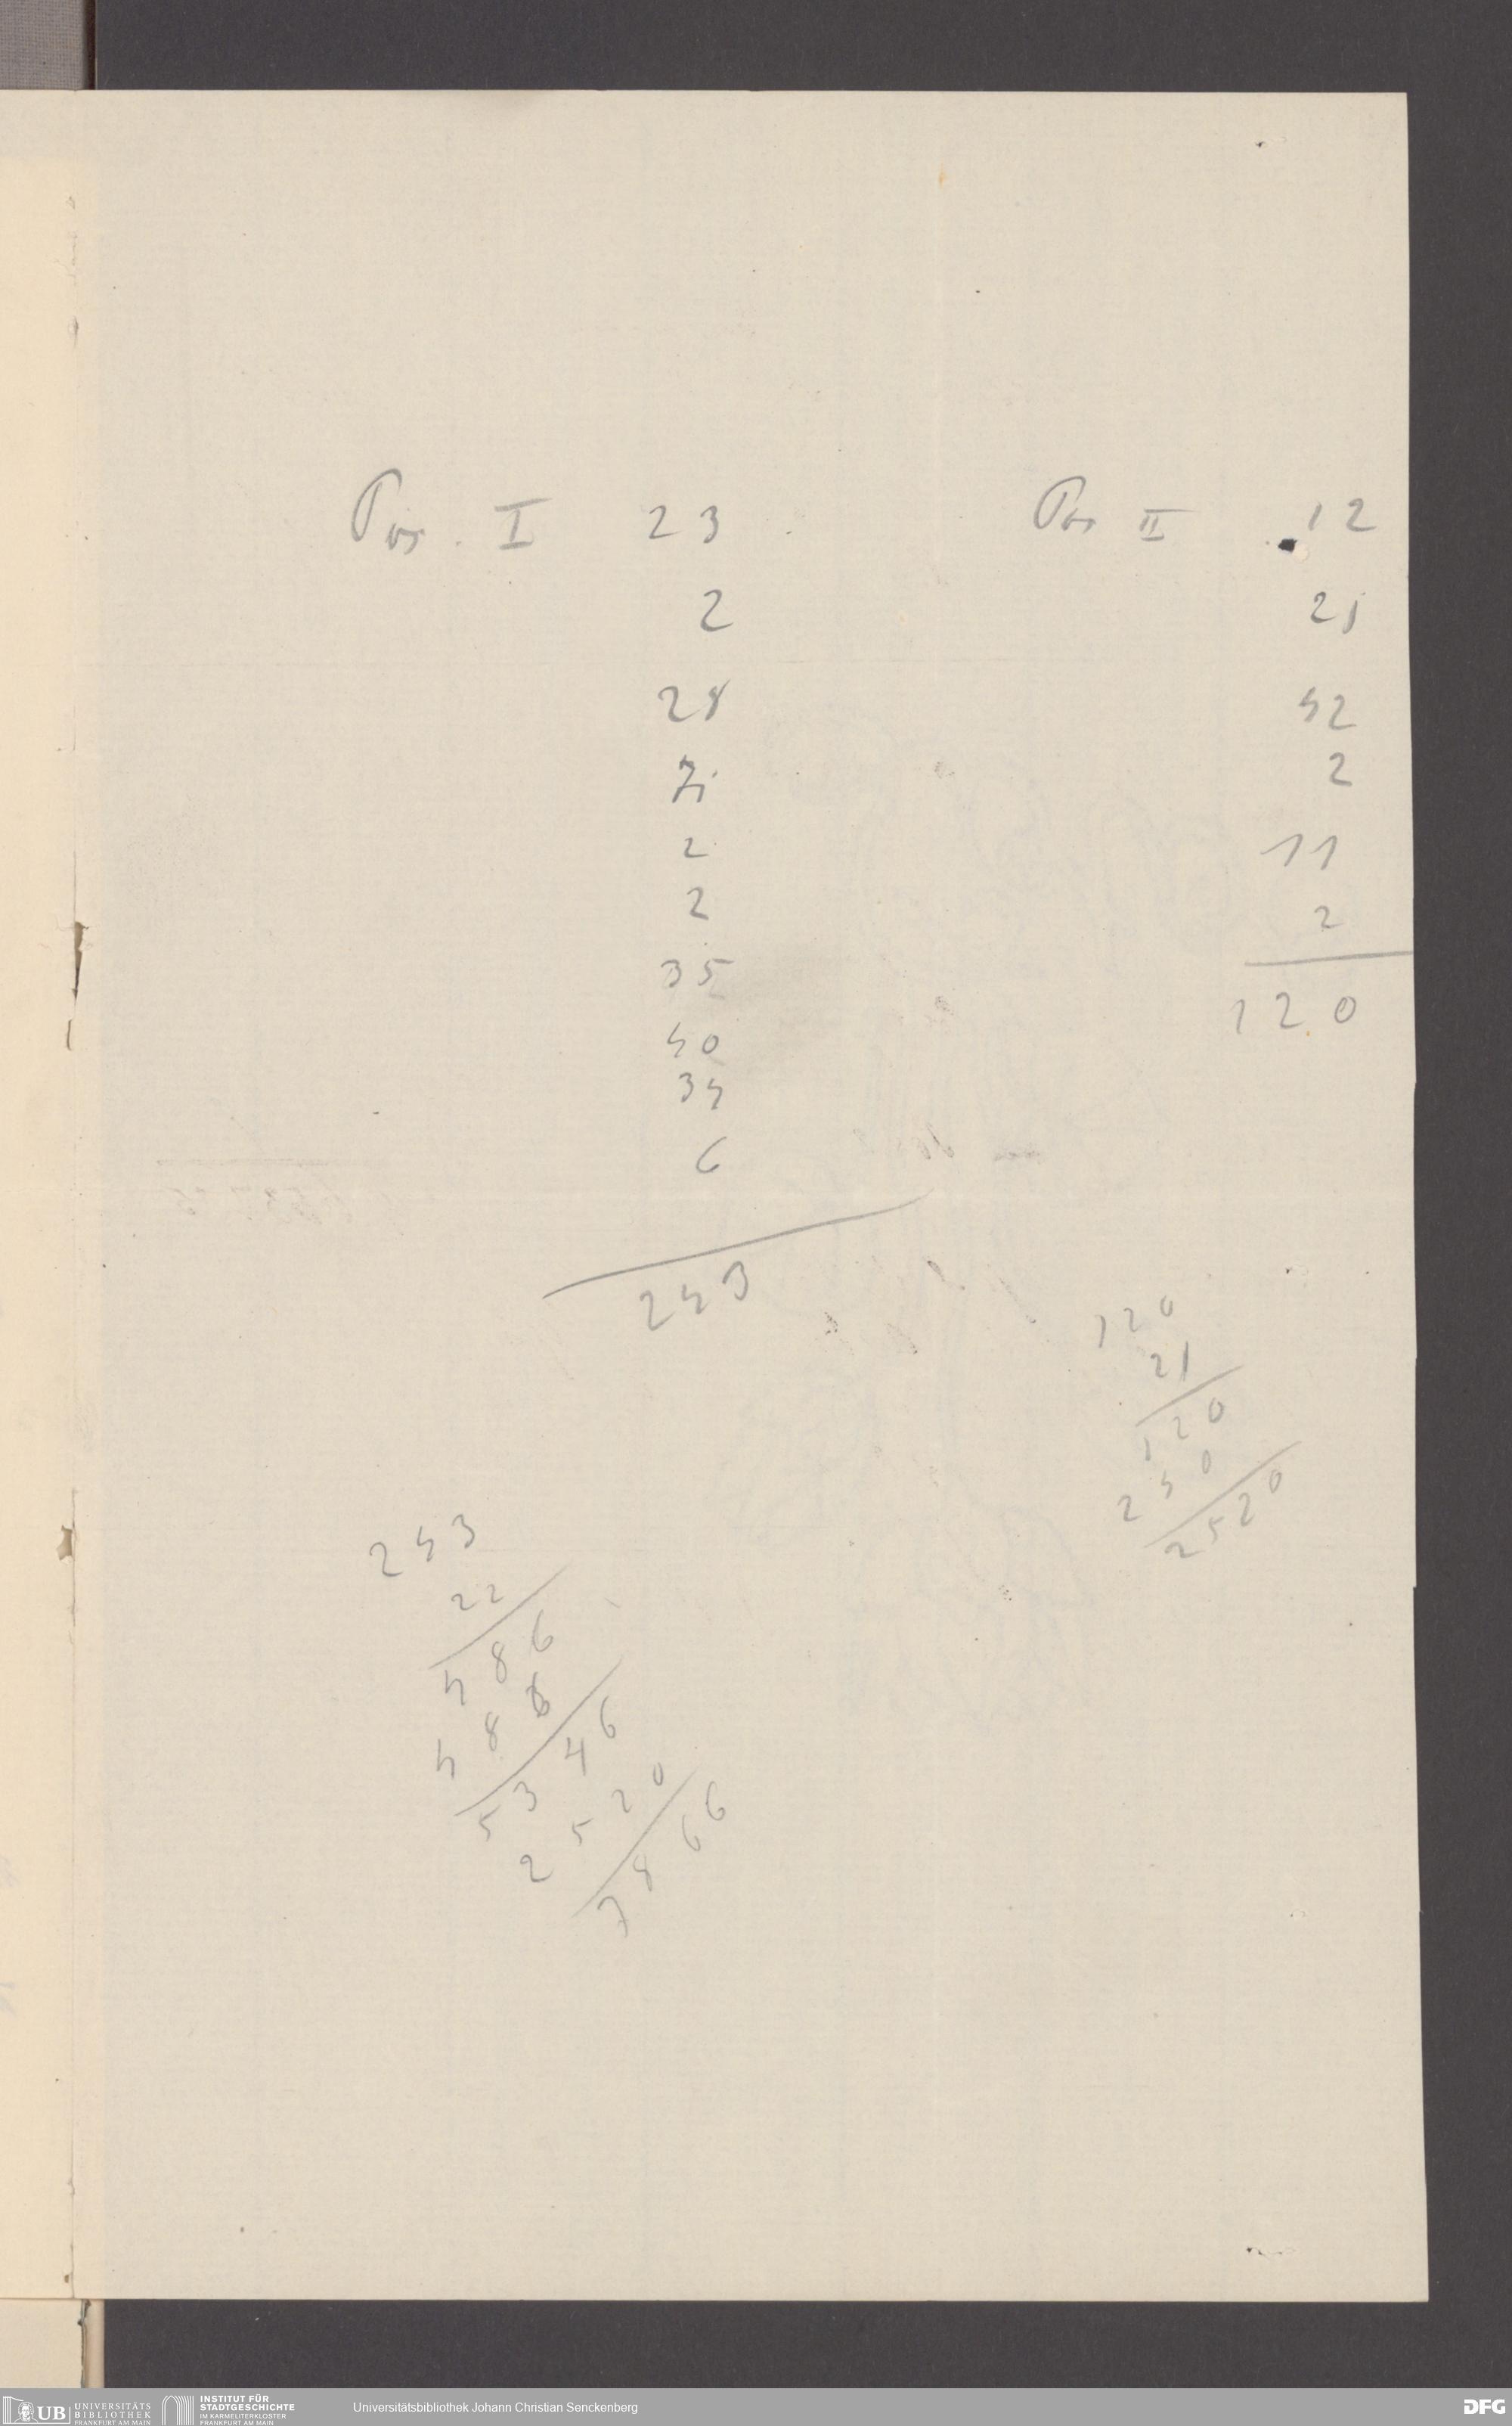 Pos. I 23
2
28
71
2
2
35
40
34
6
243
Pos II 12
21
42
2
11
2
120
120
21
120
240
2520
243
22
486
486
5346
2520
7866
UB UNIVERSITÄTS
BIBLIOTHEK
FRANKFURT AM MAIN
INSTITUT FÜR
STADTGESCHICHTE
IM KARMELITERKLOSTER
FRANKFURT AM MAIN
Universitätsbibliothek Johann Christian Senckenberg
DFG